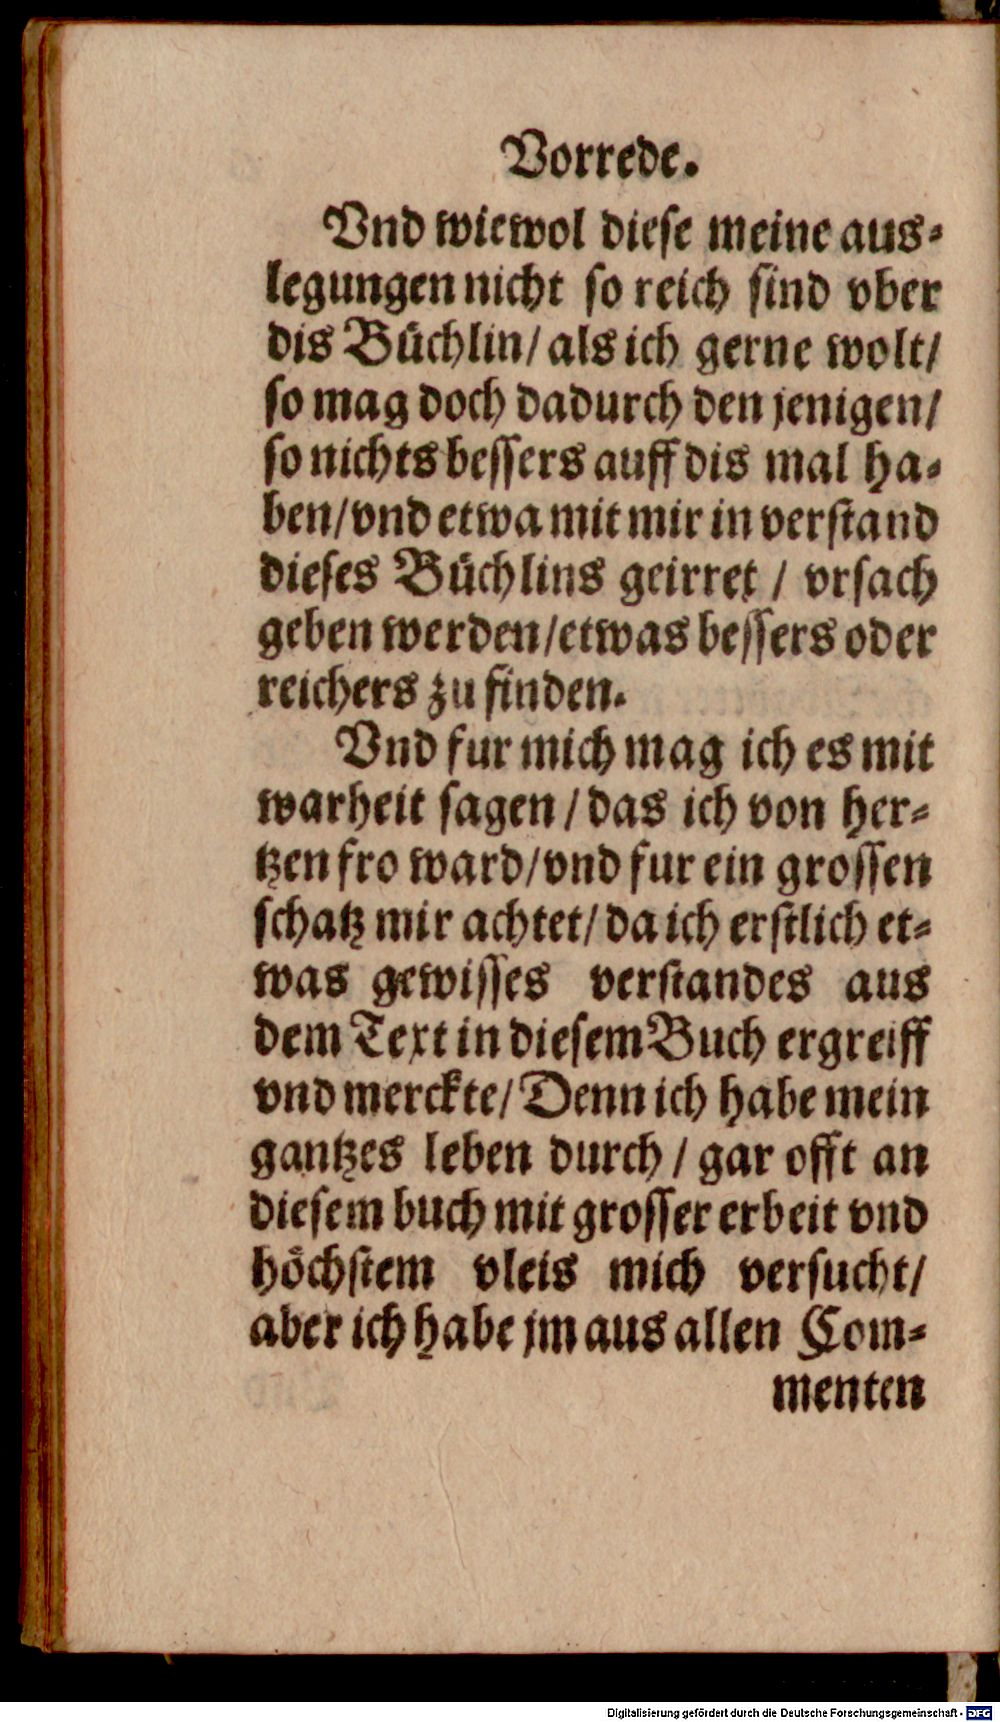 Vorrede.
Vnd wiewol dieſe meine aus⸗
legungen nicht ſo reich ſind vber
dis Büchlin/ als ich gerne wolt/
ſo mag doch dadurch den jenigen/
ſo nichts beſſers auff dis mal ha⸗
ben/ vnd etwa mit mir in verſtand
dieſes Büchlins geirret / vrſach
geben werden/ etwas beſſers oder
reichers zu finden.
Vnd fur mich mag ich es mit
warheit ſagen / das ich von her⸗
tzen fro ward/ vnd fur ein groſſen
ſchatz mir achtet/ da ich erſtlich et⸗
was gewiſſes verſtandes aus
dem Text in dieſem Buch ergreiff
vnd merckte/ Denn ich habe mein
gantzes leben durch / gar offt an
dieſem buch mit groſſer erbeit vnd
höchſtem vleis mich verſucht/
aber ich habe jm aus allen Com⸗
menten
Digitalisierung gefördert durch die Deutsche Forschungsgemeinschaft - DFG